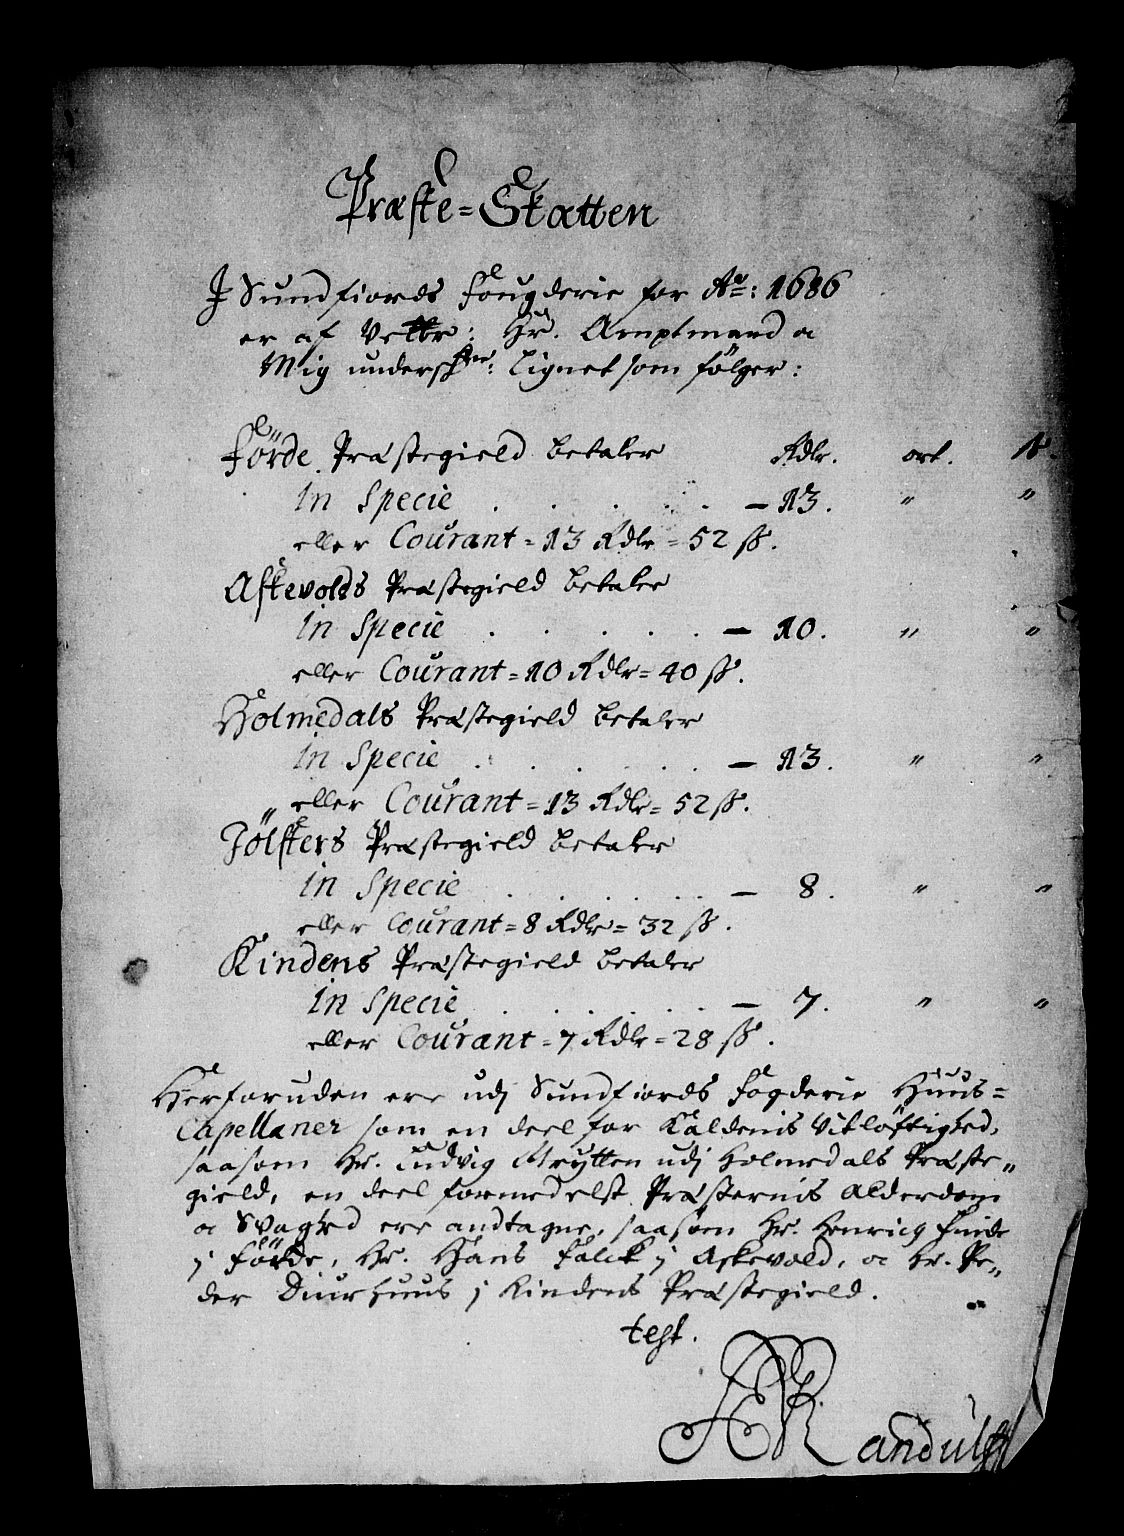 Præste=Skatten
J Sundfiords Fougderie for Ao: 1686
er af Velbr: Hr. Amptmand oc
Mig undersk: lignet som følger:
Förde Præstegield betaler Rdlr. ort. ß.
in Specie . . . . . — 13. " "
eller Courant = 13 Rdlr = 52 ß.
Askevolds Præstegield betaler
in Specie . . . . . — 10. " "
eller Courant = 10 Rdlr = 40 ß.
Holmedals Præstegield betaler
in Specie . . . . . — 13. " "
eller Courant = 13 Rdlr = 52 ß.
Jölsters Præstegield betaler
in Specie . . . . . — 8. " "
eller Courant = 8 Rdlr = 32 ß.
Kindens Præstegield betaler
in Specie . . . . . — 7. " "
eller Courant = 7 Rdlr = 28 ß.
Herforuden ere udj Sundfiords Fogderie Huus=
Capellaner som en deel for Kaldenis Vitløftighed,
saasom Hr. Ludvig Mrytten udj Holmedals Præste=
gield, en deel formedelst Præsternis Alderdom
oc Svaghed ere andtagne, saasom Hr. Henrich Finde
j Förde, Hr. Hans Falck j Askevold, oc Hr. Pe=
der Diurhuus j Kindens Præstegield.
test.
Randulff